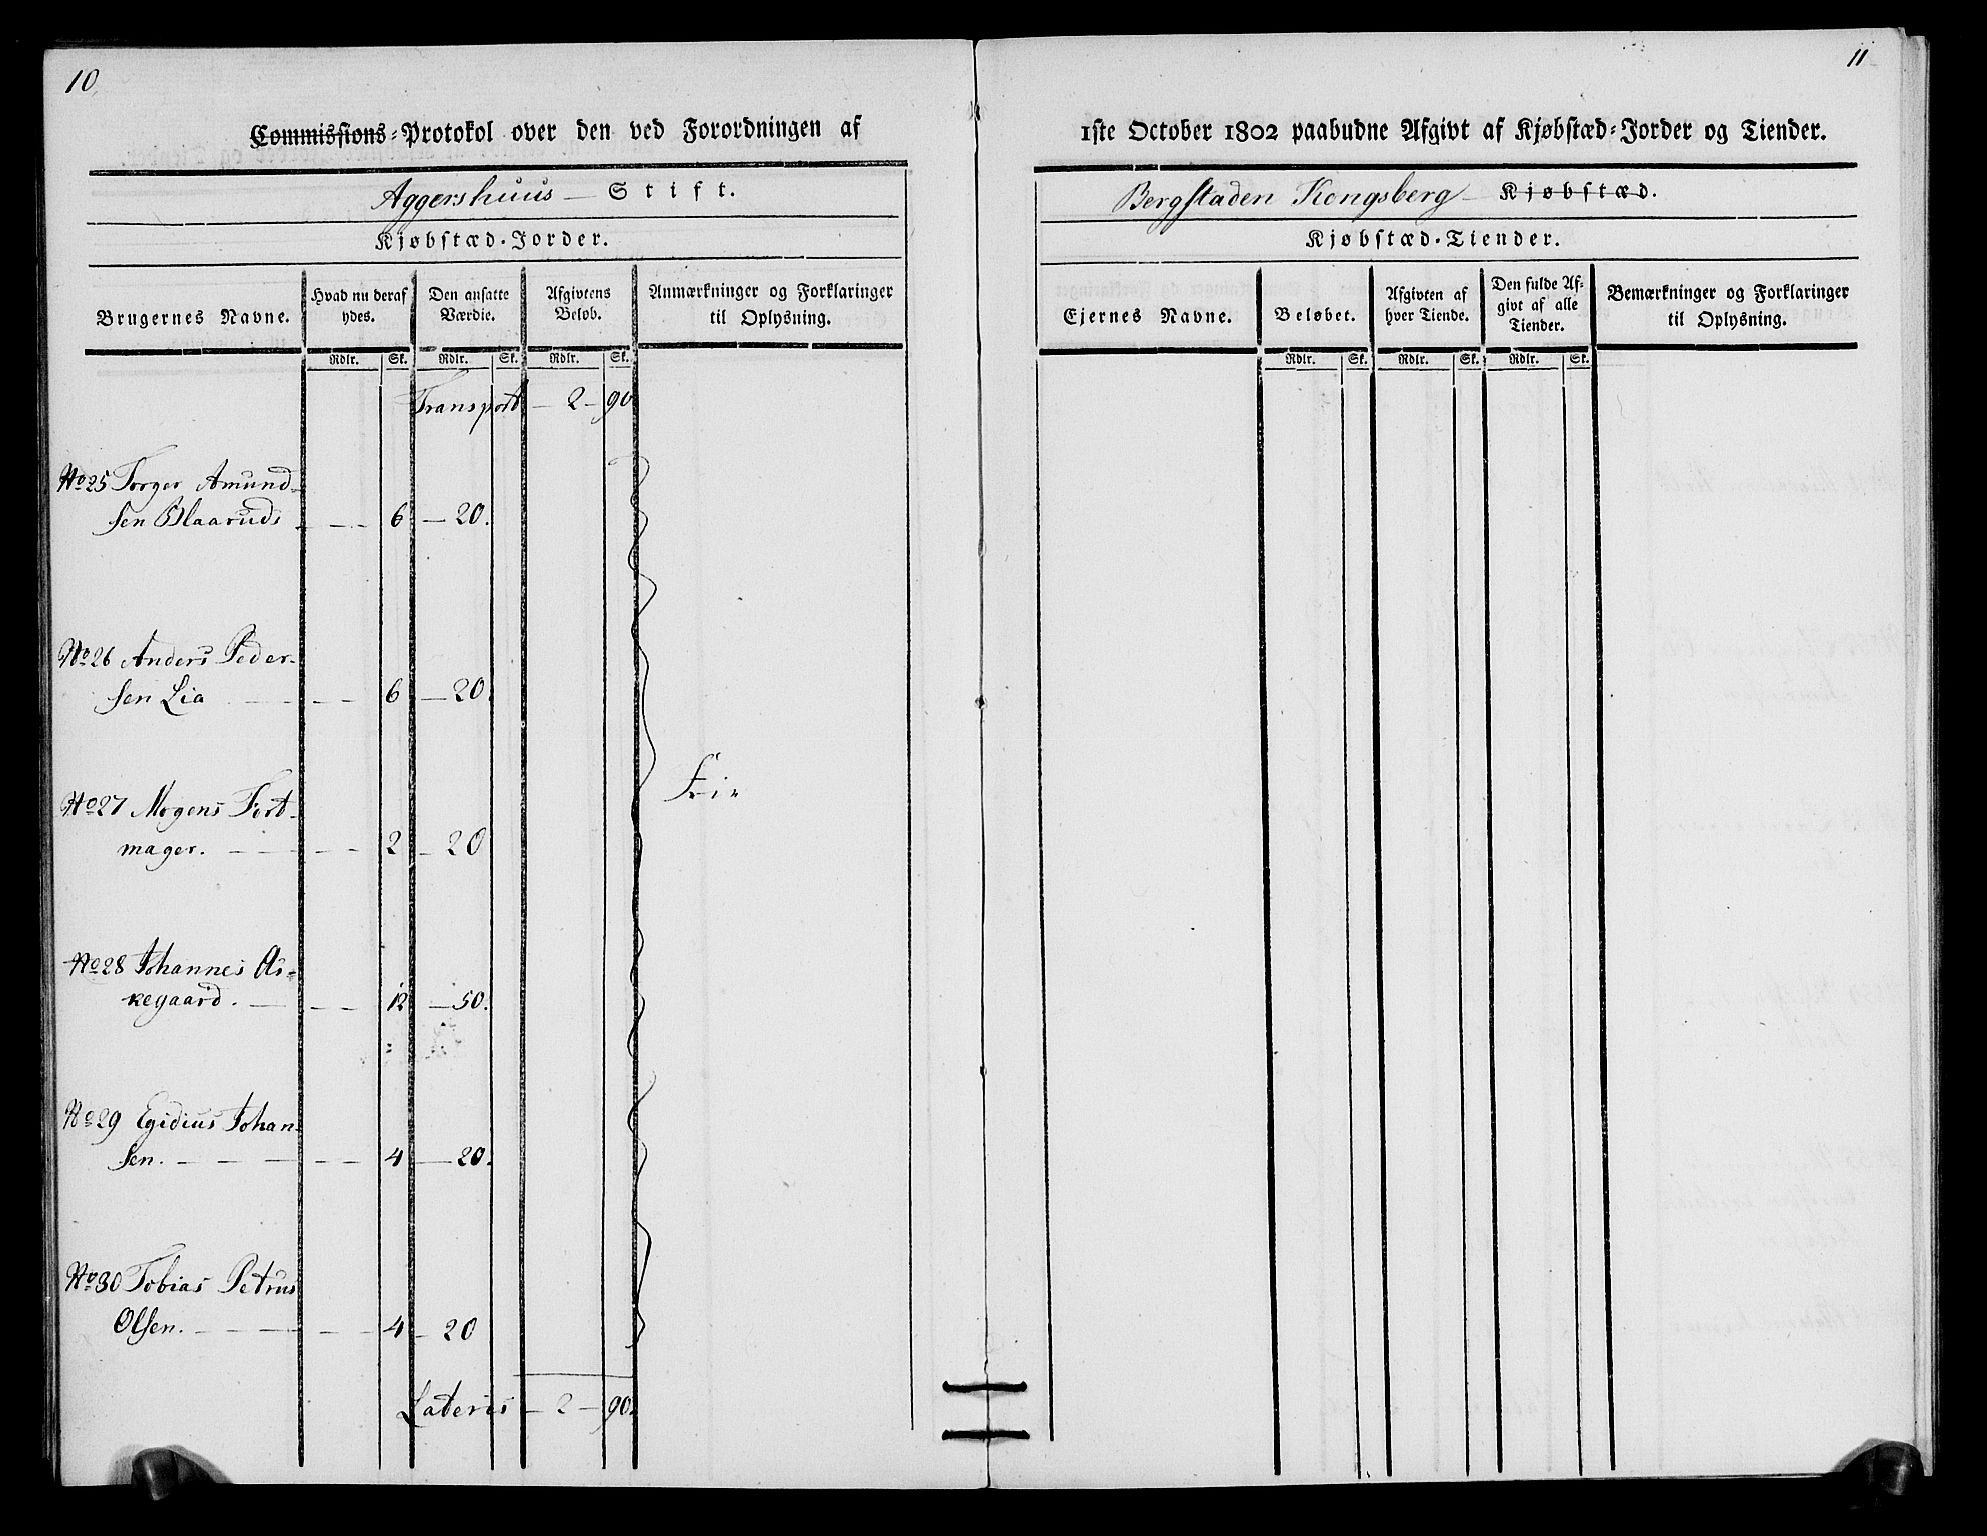 10
Commissions-Protokol over den ved Forordningen af
Aggershuus — Stift.
Kjøbstæd-Jorder.
Brugernes Navne.
Hvad nu deraf
ydes.
Den ansatte
Værdie.
Afgivtens
Beløb.
Anmærkninger og Forklaringer
til Oplysning.
Rdlr. Sk. Rdlr. Sk. Rdlr. Sk.
Transport — 2 — 90
No 25 Torger Amund-
sen Blaaruds — — 6 — 20.
No 26 Anders Peder-
sen Lia — — — 6 — 20.
Fri
No 27 Mogens Fort-
mager. — — — 2 — 20
No 28 Johannes As-
kegaard. — — — 12 — 50.
No 29 Egidius Johan-
sen. — — — — — 4 — 20.
No 30 Tobias Petrus
Olsen. — — — — — 4 — 20
Lateris — 2 — 90.
11
1ste October 1802 paabudne Afgivt af Kjøbstæd-Jorder og Tiender.
Bergstaden Kongsberg — Kjøbstæd.
Kjøbstæd-Tiender.
Ejernes Navne.
Beløbet.
Afgivten af
hver Tiende.
Den fulde Af-
givt af alle
Tiender.
Bemærkninger og Forklaringer
til Oplysning.
Rdlr. Sk. Rdlr. Sk. Rdlr. Sk.